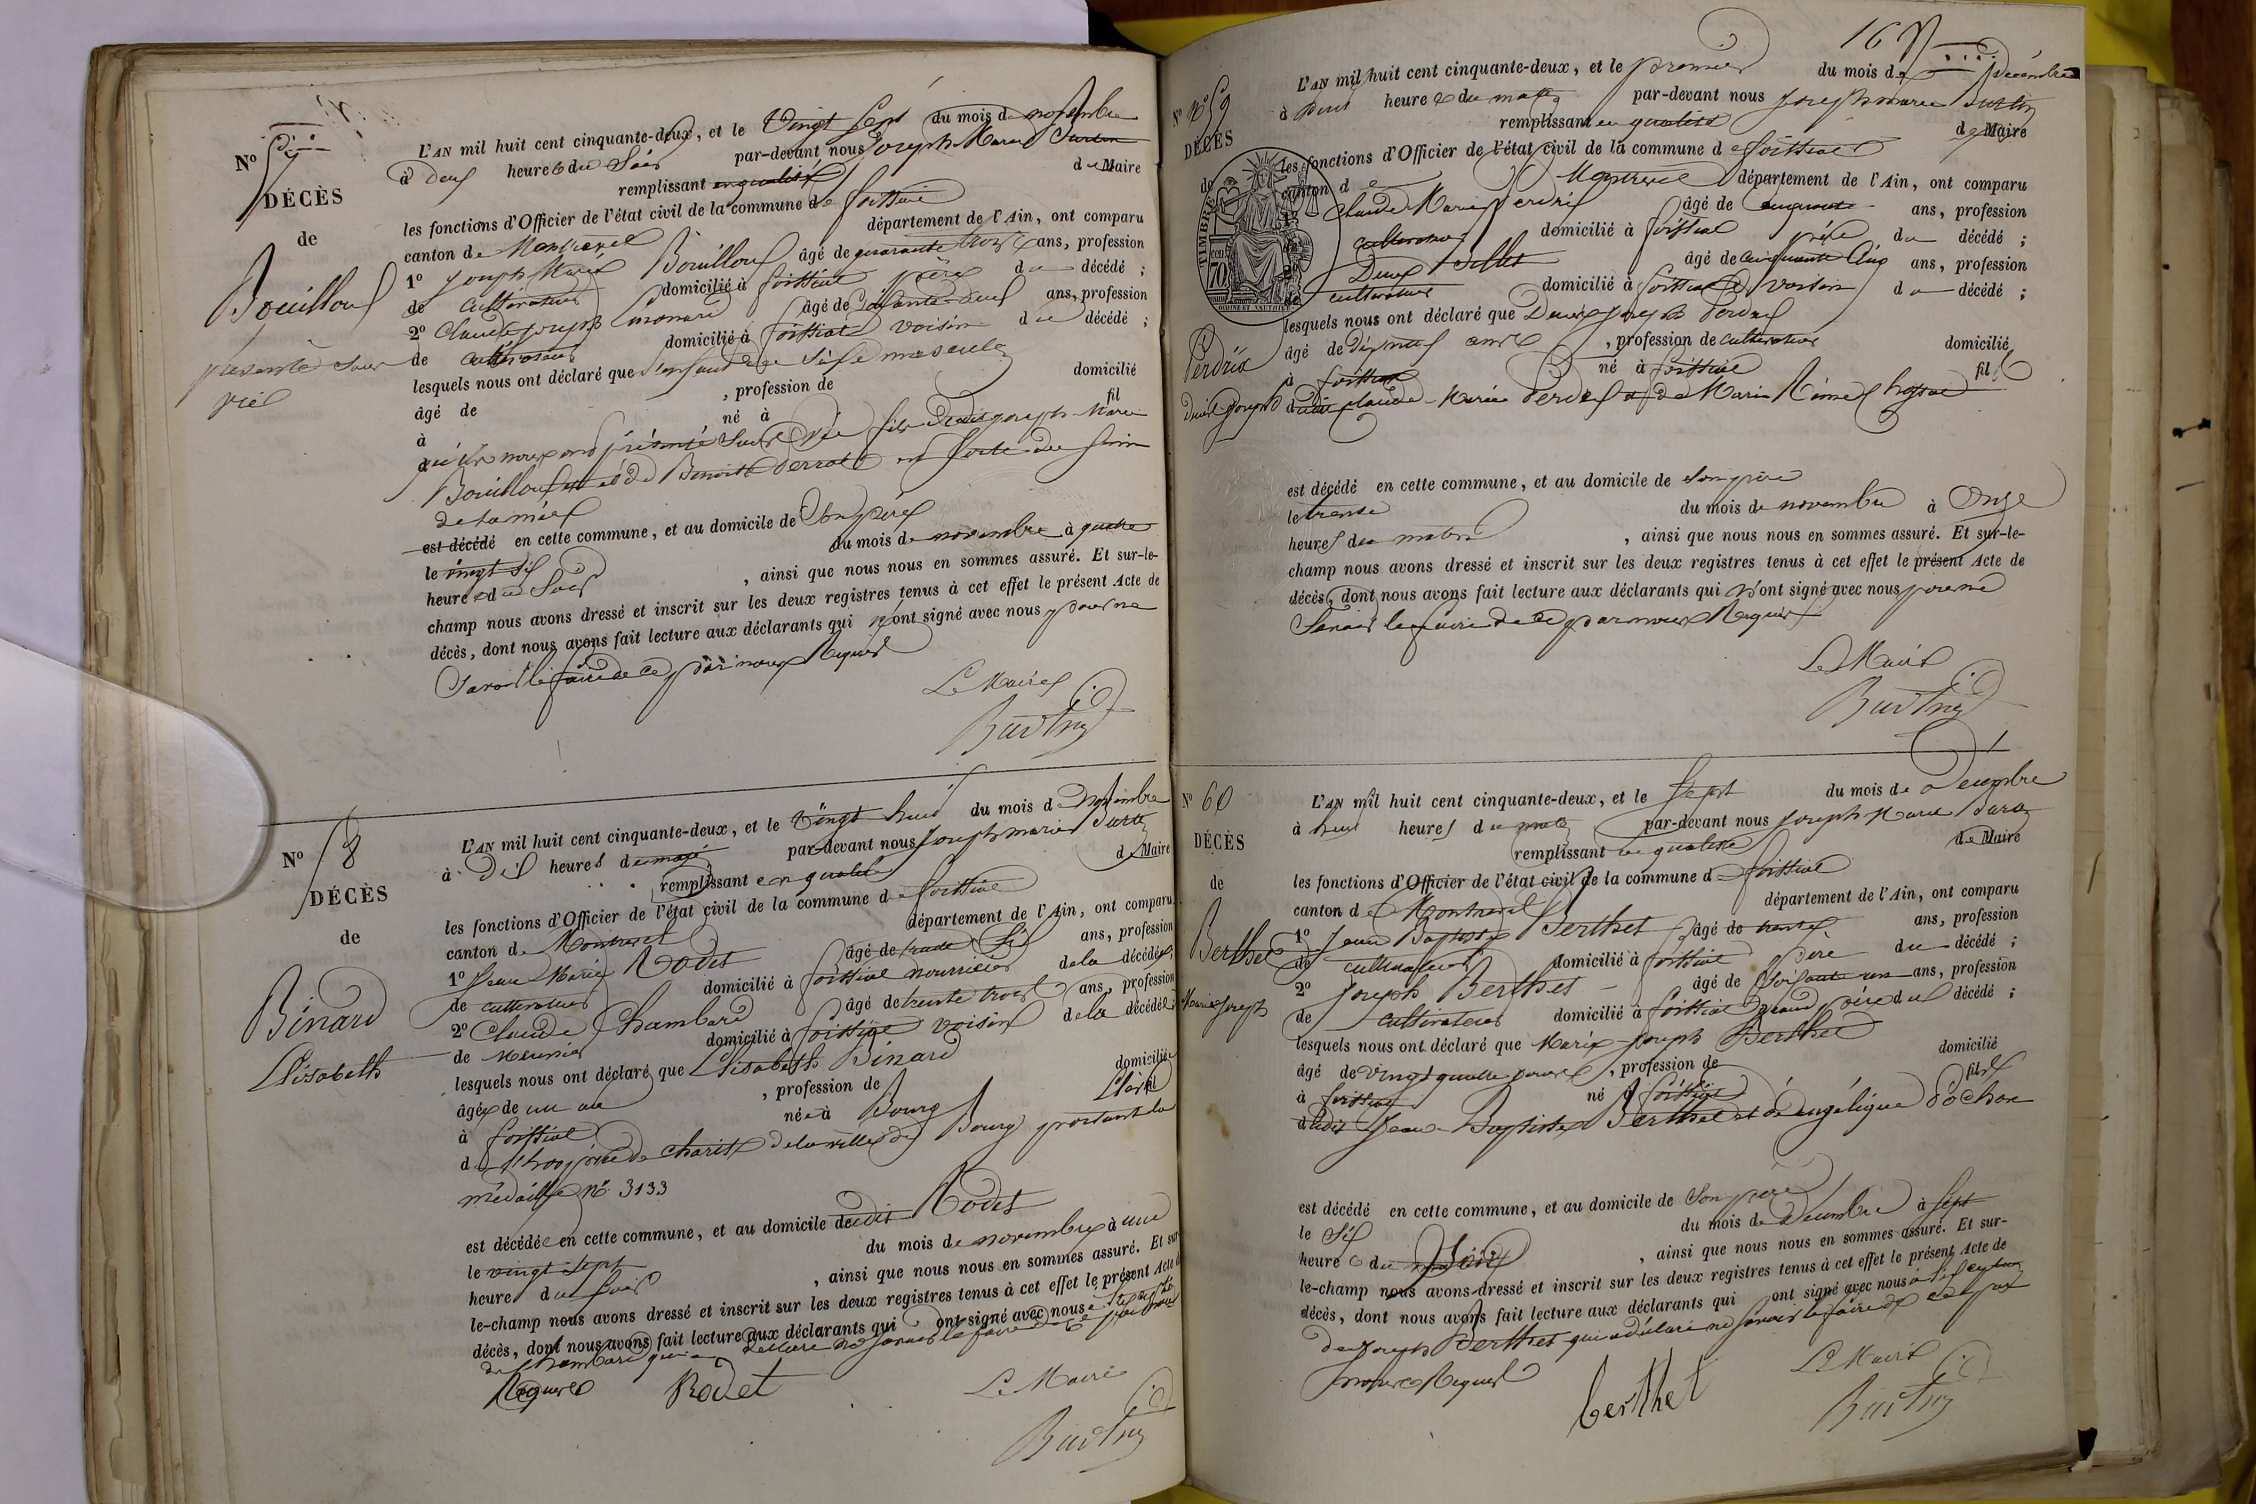 N° 57
DÉCÈS
de
Bouilloux
présenté sans
vie
L'AN mil huit cent cinquante-deux, et le Vingt Sept du mois de novembre
à deux heures du Soir par-devant nous Joseph Marie
remplissant en qualité de Maire
les fonctions d'Officier de l'état civil de la commune de foissiat
canton de Montrevel département de l'Ain, ont comparu
1° Joseph Marie Bouilloux âgé de quarante trois ans, profession
de cultivateur domicilié à foissiat père du décédé ;
2° Claude Joseph âgé de Soixante deux ans, profession
de cultivateur domicilié à foissiat voisin du décédé ;
lesquels nous ont déclaré que l'enfant de Sexe masculin
âgé de , profession de domicilié
à né à fil
qu'ils nous ont présenté Sans Vie fils dudit joseph Marie
Bouilloux et de Benoite Perrot est sorti du sein
de sa mère
est décédé en cette commune, et au domicile de Son père
le vingt Six du mois de novembre à quatre
heures du Soir , ainsi que nous nous en sommes assuré. Et sur-le-
champ nous avons dressé et inscrit sur les deux registres tenus à cet effet le présent Acte de
décès, dont nous avons fait lecture aux déclarants qui n'ont signé avec nous pour ne
Savoir le faire de ce par nous Requis
Le Maire
N° 58
DÉCÈS
de
Binard
Elisabeth
L'AN mil huit cent cinquante-deux, et le Vingt huit du mois de Novembre
à Dix heures du par-devant nous Joseph marie
remplissant en qualité de Maire
les fonctions d'Officier de l'état civil de la commune de foissiat
canton de Montrevel département de l'Ain, ont comparu
1° Jean Marie Rodet âgé de trente Six ans, profession
de cultivateur domicilié à foissiat nourricier de la décédée ;
2° Claude Chambard âgé de trente trois ans, profession
de Meunier domicilié à foissiat voisin de la décédée ;
lesquels nous ont déclaré que Elisabeth Binard
âgée de un an , profession de domiciliée
à foissiat née à Bourg
d l'hospice de charité de la ville de Bourg portant la
médaille n° 3133
est décédée en cette commune, et au domicile dudit Rodet
le vingt Sept du mois de novembre à une
heure du Soir , ainsi que nous nous en sommes assuré. Et sur-
le-champ nous avons dressé et inscrit sur les deux registres tenus à cet effet le présent Acte de
décès, dont nous avons fait lecture aux déclarants qui ont signé avec nous
de Chambard qui a déclaré ne Savoir le faire de ce par nous
Requis Rodet
Le Maire
N° 59
DÉCÈS
de
Perdrix
TIMBRE
70
L'AN mil huit cent cinquante-deux, et le premier du mois de Décembre
à heures du matin par-devant nous Joseph marie
remplissant en qualité de Maire
les fonctions d'Officier de l'état civil de la commune de foissiat
canton de Montrevel département de l'Ain, ont comparu
Claude Marie Perdrix âgé de cinquante ans, profession
cultivateur domicilié à foissiat père du décédé ;
âgé de cinquante cinq ans, profession
cultivateur domicilié à foissiat voisin du décédé ;
lesquels nous ont déclaré que Denis Joseph Perdrix
âgé de dix neuf ans , profession de cultivateur domicilié
à foissiat né à foissiat fils
dudit claude Marie Perdrix et de Marie
est décédé en cette commune, et au domicile de son père
le trente du mois de novembre à Onze
heures du matin , ainsi que nous nous en sommes assuré. Et sur-le-
champ nous avons dressé et inscrit sur les deux registres tenus à cet effet le présent Acte de
décès, dont nous avons fait lecture aux déclarants qui n'ont signé avec nous pour ne
Savoir le faire de ce par nous Requis
Le Maire
N° 60
DÉCÈS
de
Berthet
Marie Joseph
L'AN mil huit cent cinquante-deux, et le Sept du mois de Decembre
à huit heures du matin par-devant nous Joseph Marie
remplissant en qualité de Maire
les fonctions d'Officier de l'état civil de la commune de foissiat
canton de Montrevel département de l'Ain, ont comparu
1° Jean Baptiste Berthet âgé de trente ans, profession
de cultivateur domicilié à foissiat père du décédé ;
2° Joseph Berthet âgé de Soixante un ans, profession
de cultivateur domicilié à foissiat grand père du décédé ;
lesquels nous ont déclaré que Marie Joseph Berthet
âgé de vingt quatre jours , profession de domicilié
à foissiat né à foissiat fils
dudit Jean Baptiste Berthet et d'angélique Pochon
est décédé en cette commune, et au domicile de Son père
le Six du mois de Decembre à Sept
heures du Soir , ainsi que nous nous en sommes assuré. Et sur-
le-champ nous avons dressé et inscrit sur les deux registres tenus à cet effet le présent Acte de
décès, dont nous avons fait lecture aux déclarants qui ont signé avec nous à l'exception
de Joseph Berthet qui a déclaré ne Savoir le faire de ce par
nous Requis
berthet
Le Maire